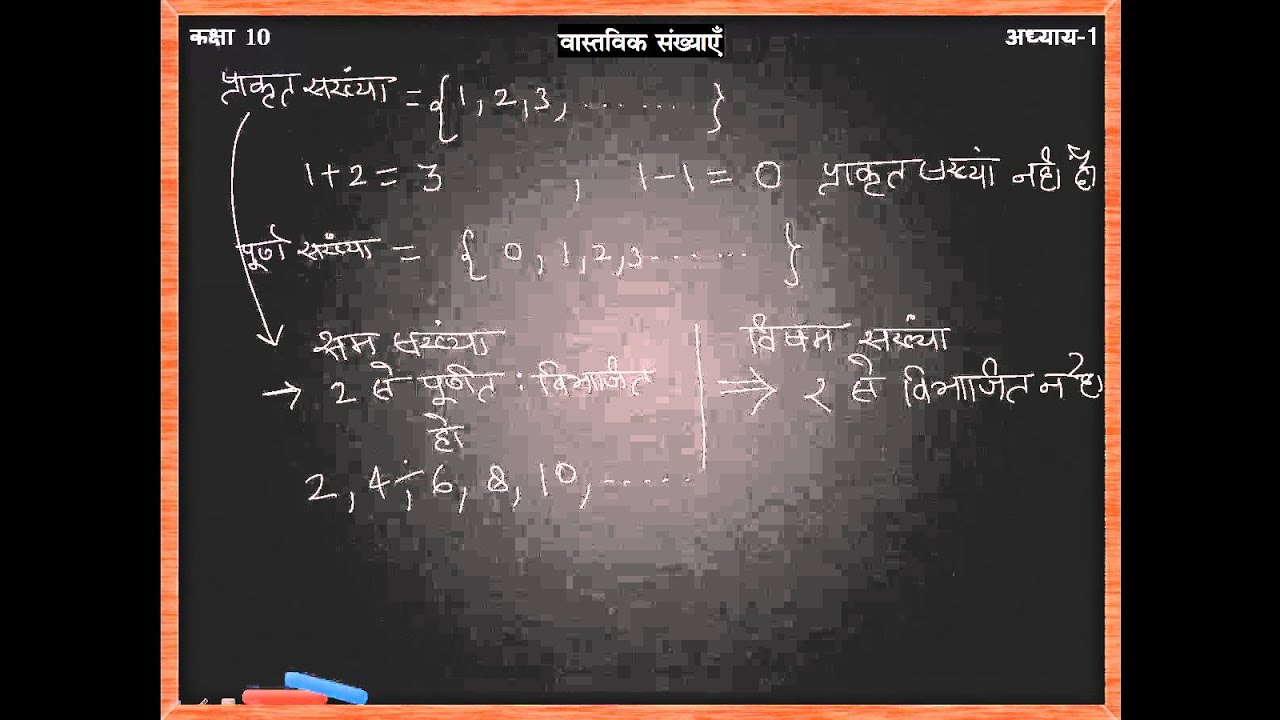 कक्षा 10
वास्तविक संख्याएँ
अध्याय-1
प्राकृत संख्या = {1, 2, 3, ......... }
1+2 = 3 , 1-1 = 0 प्राकृत संख्या नहीं है
पूर्ण संख्या = { 0, 1, 2, 3 ....... }
सम संख्या
→ 2 से पूर्णत: विभाजित
हो
2, 4, 6, 8, 10, ......
विषम संख्या
⇒ 2 से विभाजित न हो